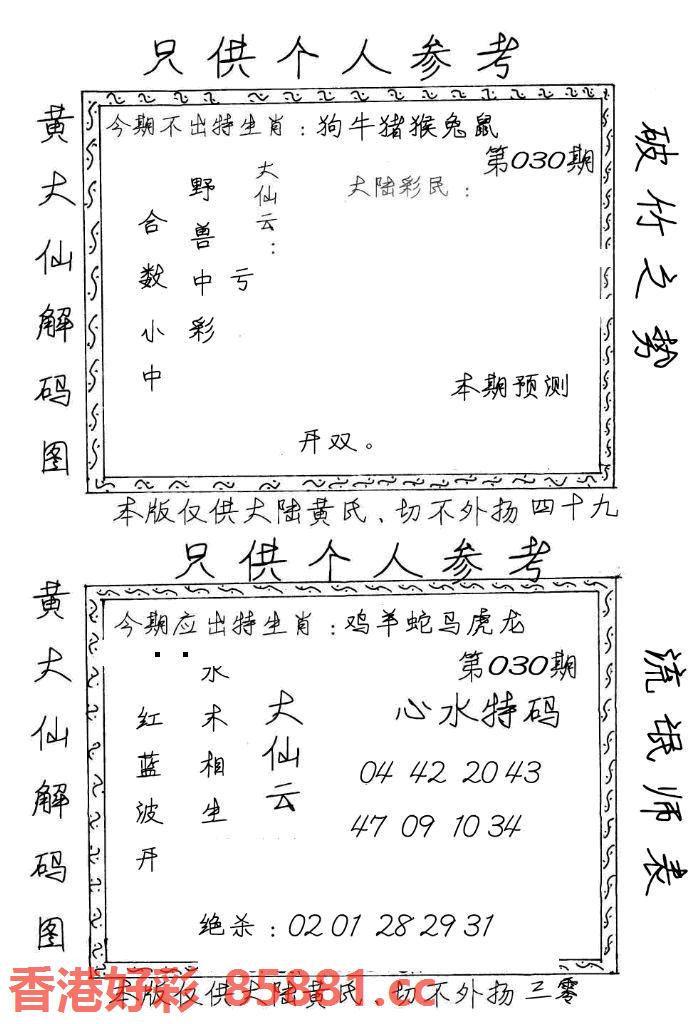 只供个人参考
黄大仙解码图
今期不出特生肖：狗牛猪猴兔鼠
第030期
大陆彩民：
大仙云：
野兽中彩
亏
合数小中
本期预测
开双。
破竹之势
本版仅供大陆黄氏、切不外扬四十九
只供个人参考
黄大仙解码图
今期应出特生肖：鸡羊蛇马虎龙
第030期
心水特码
大仙云
水木相生
红蓝波开
04 42 20 43
47 09 10 34
绝杀：02 01 28 29 31
流氓师表
本版仅供大陆黄氏、切不外扬三零
香港好彩 85881.cc